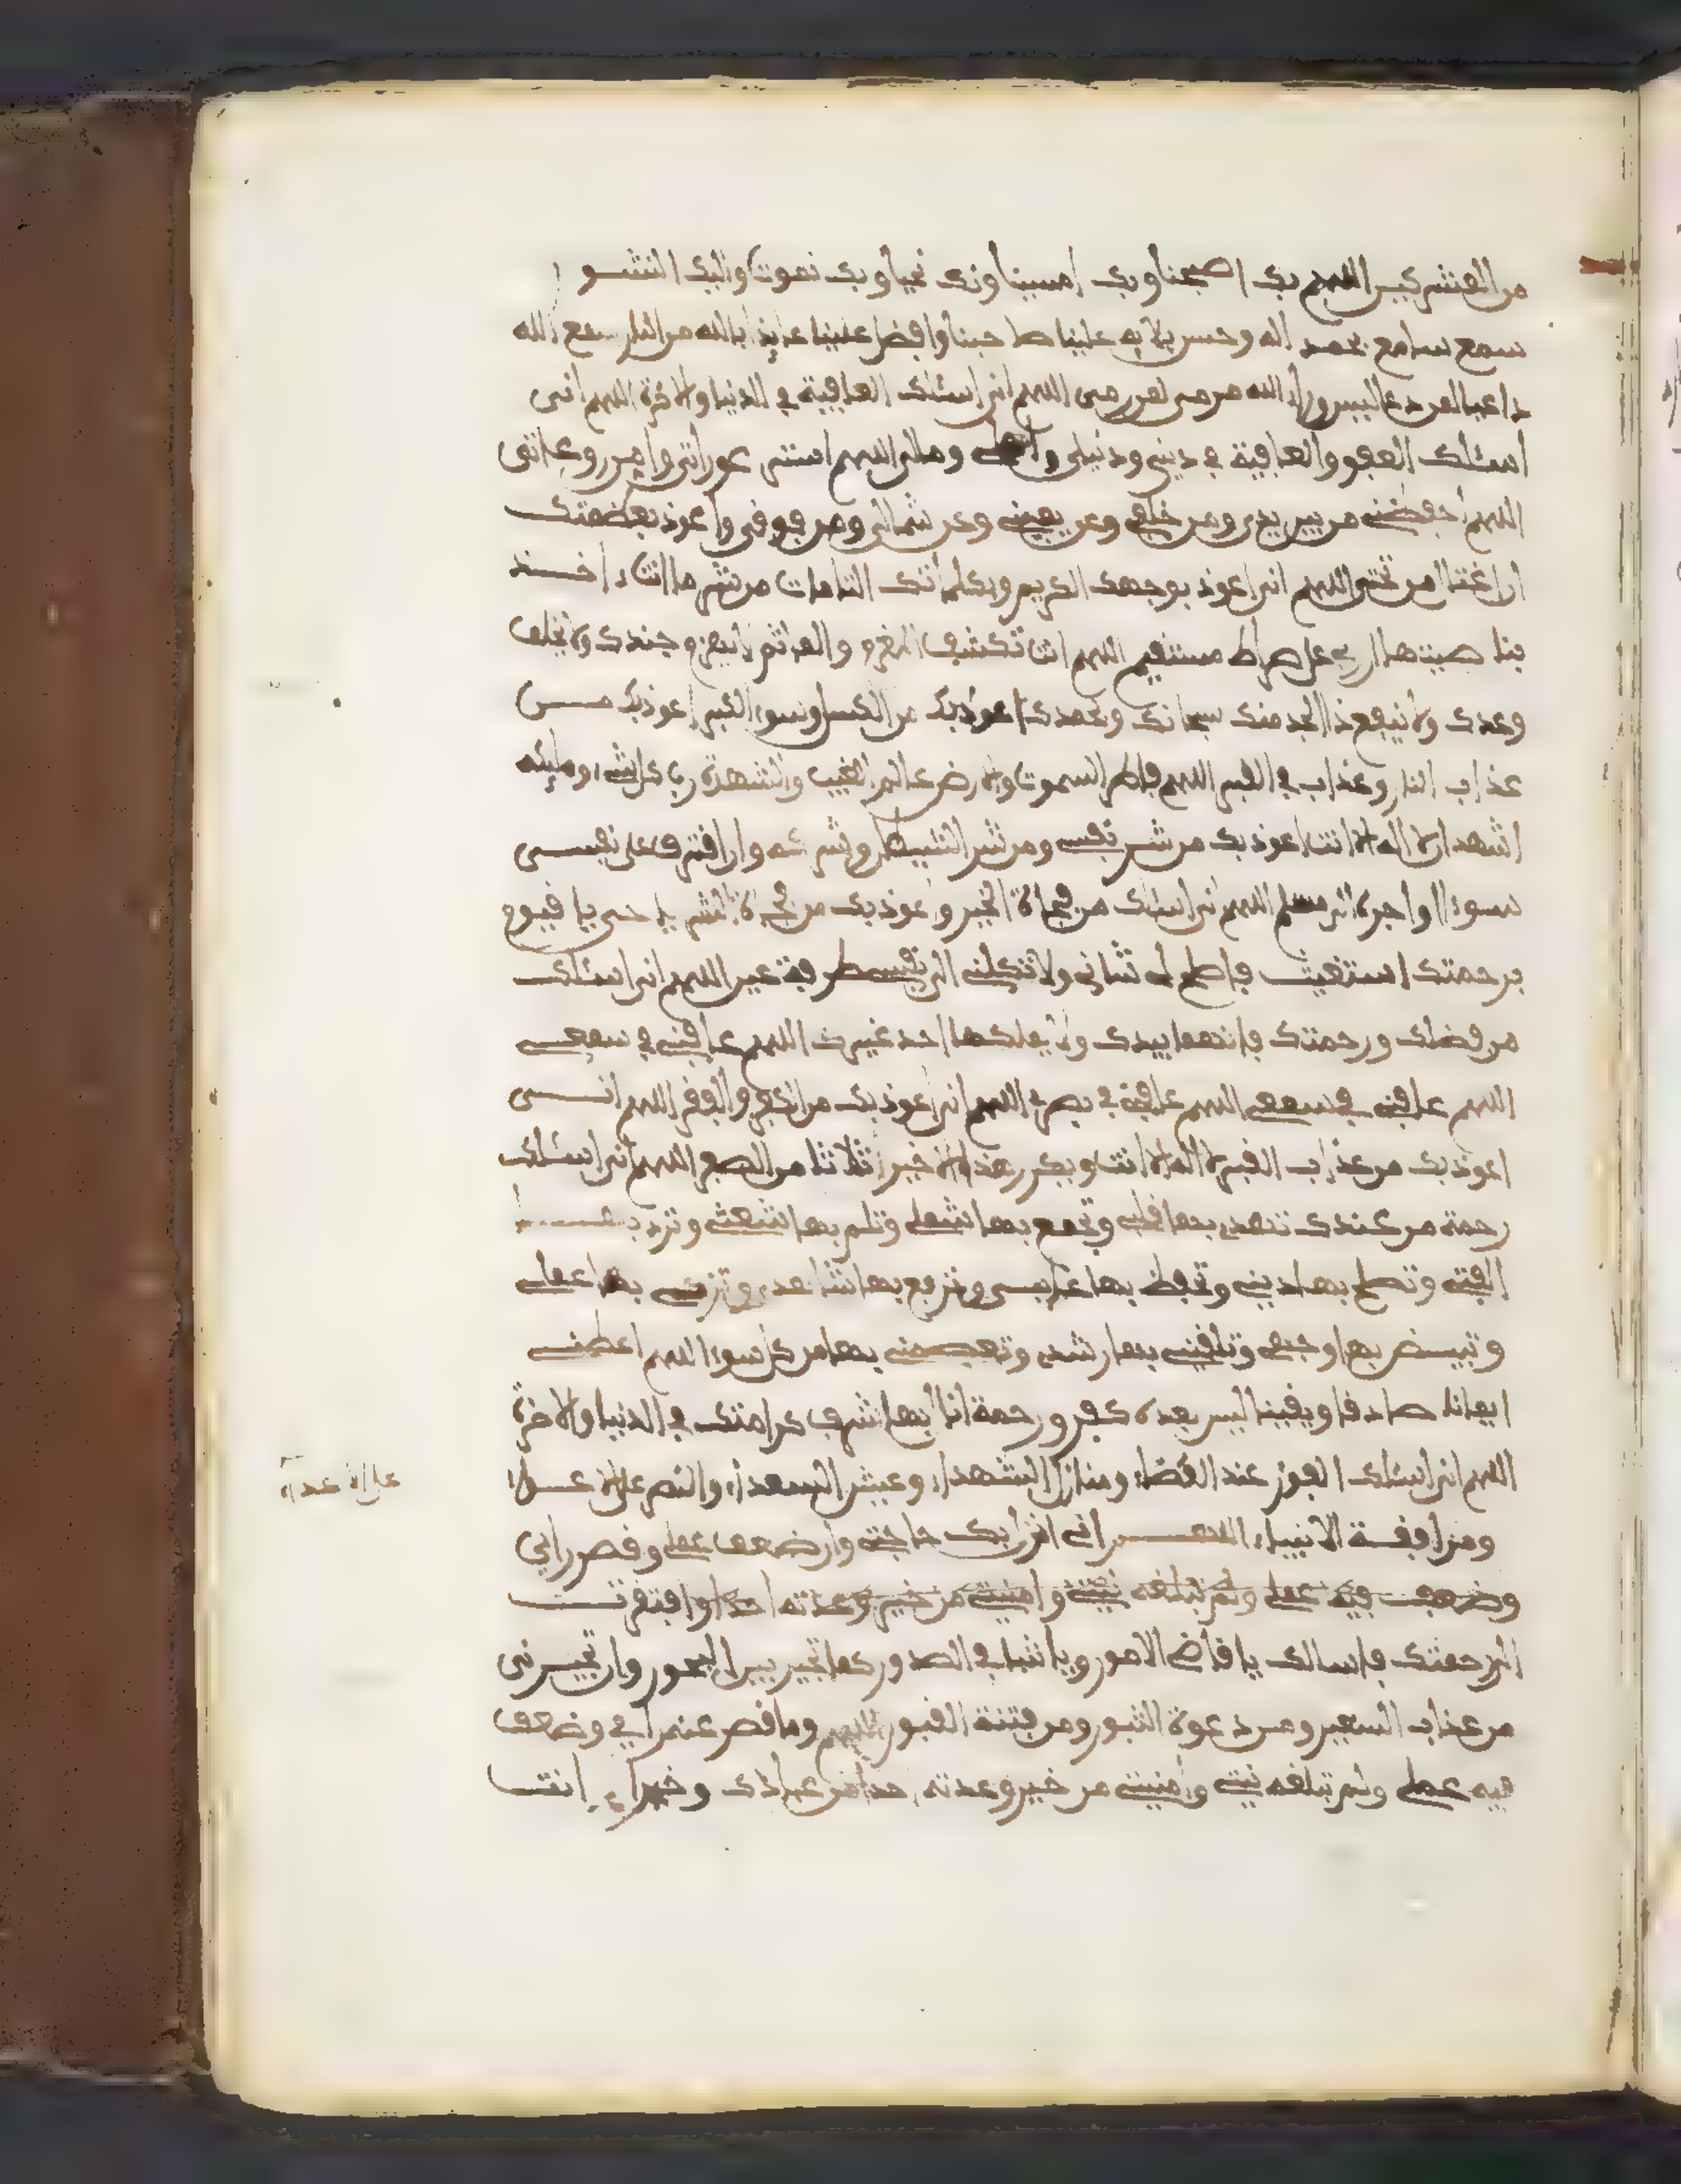 من المشركين اللهم بك اصبحنا وبك امسينا وبك نحيا وبك نموت واليك النشو
سمع سامع بحمد الله وحسن بلايه علينا صاحبنا وافضل علينا عايذا بالله من النار سمع الله
اللهم اني اسئلك العافية في الدنيا والاخرة اللهم اني
اسئلك العفو والعافية في ديني ودنياي واهلي ومالي اللهم استر عوراتي وامن روعاتي
اللهم احفظني من بين يدي ومن خلفي وعن يميني وعن شمالي ومن فوقي واعوذ بعظمتك
ان اغتال من تحتي اللهم اني اعوذ بوجهك الكريم وبكلماتك التامات من شر ما انت اخذ
بناصيتها ان ربي على صراط مستقيم اللهم انت تكشف المغرم والماثم لا يهزم جندك ولا يخلف
وعدك ولا ينفع ذا الجد منك سبحانك وبحمدك اعوذ بك من الكسل وسوء الكبر اعوذ بك من
عذاب النار وعذاب في القبر اللهم فاطر السموت والارض عالم الغيب والشهدة رب كل شيء ومليكه
اشهد ان لا اله الا انت اعوذ بك من شر نفسي ومن شر الشيطن وشركه وان اقترف على نفسي
سوءا او اجره الى مسلم اللهم اني اسئلك من فجاة الخير واعوذ بك من فجاة الشر يا حي يا قيوم
برحمتك استغيث فاصلح لي شاني ولا تكلني الى نفسي طرفة عين اللهم اني اسئلك
من فضلك ورحمتك فانهما بيدك ولا يملكها احد غيرك اللهم عافني في سمعي
اللهم عافني في سمعي اللهم عافني في بصري اللهم اني اعوذ بك من الكفر والفقر اللهم اني
اعوذ بك من عذاب القبر لا اله الا انت ويكرر هذا الاخير ثلاثا من الصبح اللهم اني اسئلك
رحمة من عندك تهدي بها قلبي وتجمع بها شملي وتلم بها شعثي وترد بها
الفتي وتصلح بها ديني وتحفظ بها غايبي وترفع بها شاهدي وتزكي بها عملي
وتبيض بها وجهي وتلقنني بها رشدي وتعصمني بها من كل سوء اللهم اعطني
ايمانا صادقا ويقينا ليس بعده كفر ورحمة انال بها شرف كرامتك في الدنيا والاخرة
اللهم اني اسئلك الفوز عند القضاء ومنازل الشهداء وعيش السعداء والنصر على الاعداء
على الاعداء
ومرافقة الانبياء اللهم اني انزل بك حاجتي وان ضعف عملي وقصر رايي
وضعف فيه عملي ولم تبلغه نيتي وامنيتي من خير وعدته احدا وافتقرت
الى رحمتك فاسالك يا قاضي الامور ويا شافي الصدور كما تجير بين البحور وان تجيرني
من عذاب السعير ومن دعوة الثبور ومن فتنة القبور اللهم وما قصر عنه رايي وضعف
فيه عملي ولم تبلغه نيتي وامنيتي من خير وعدته احدا من عبادك وخير انت